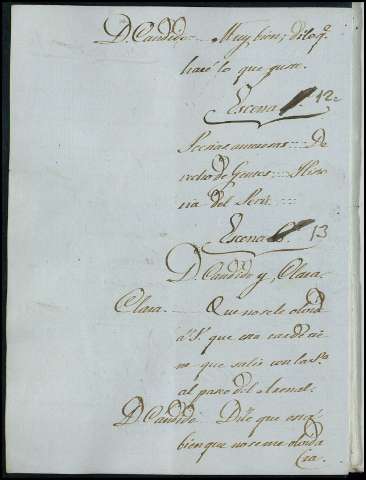 D. Candido... Muy bien; dile q.e
hare lo que guste.
Escena 12
Poesias amorosas.... De
recho de Gentes.... Histo
ria del Perú.
Escena 13
D. Candido y, Clara
Clara. Que no se le olvide
á V. que era
que salir con la S.a
al paseo del Arenal.
D. Candido. Dile que está
bien que no se me olvida
ra.